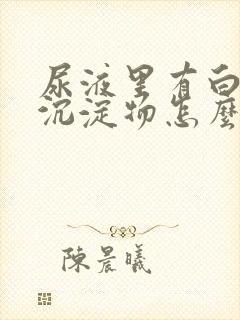 尿液里有白
沉淀物怎麼
陳晨曦